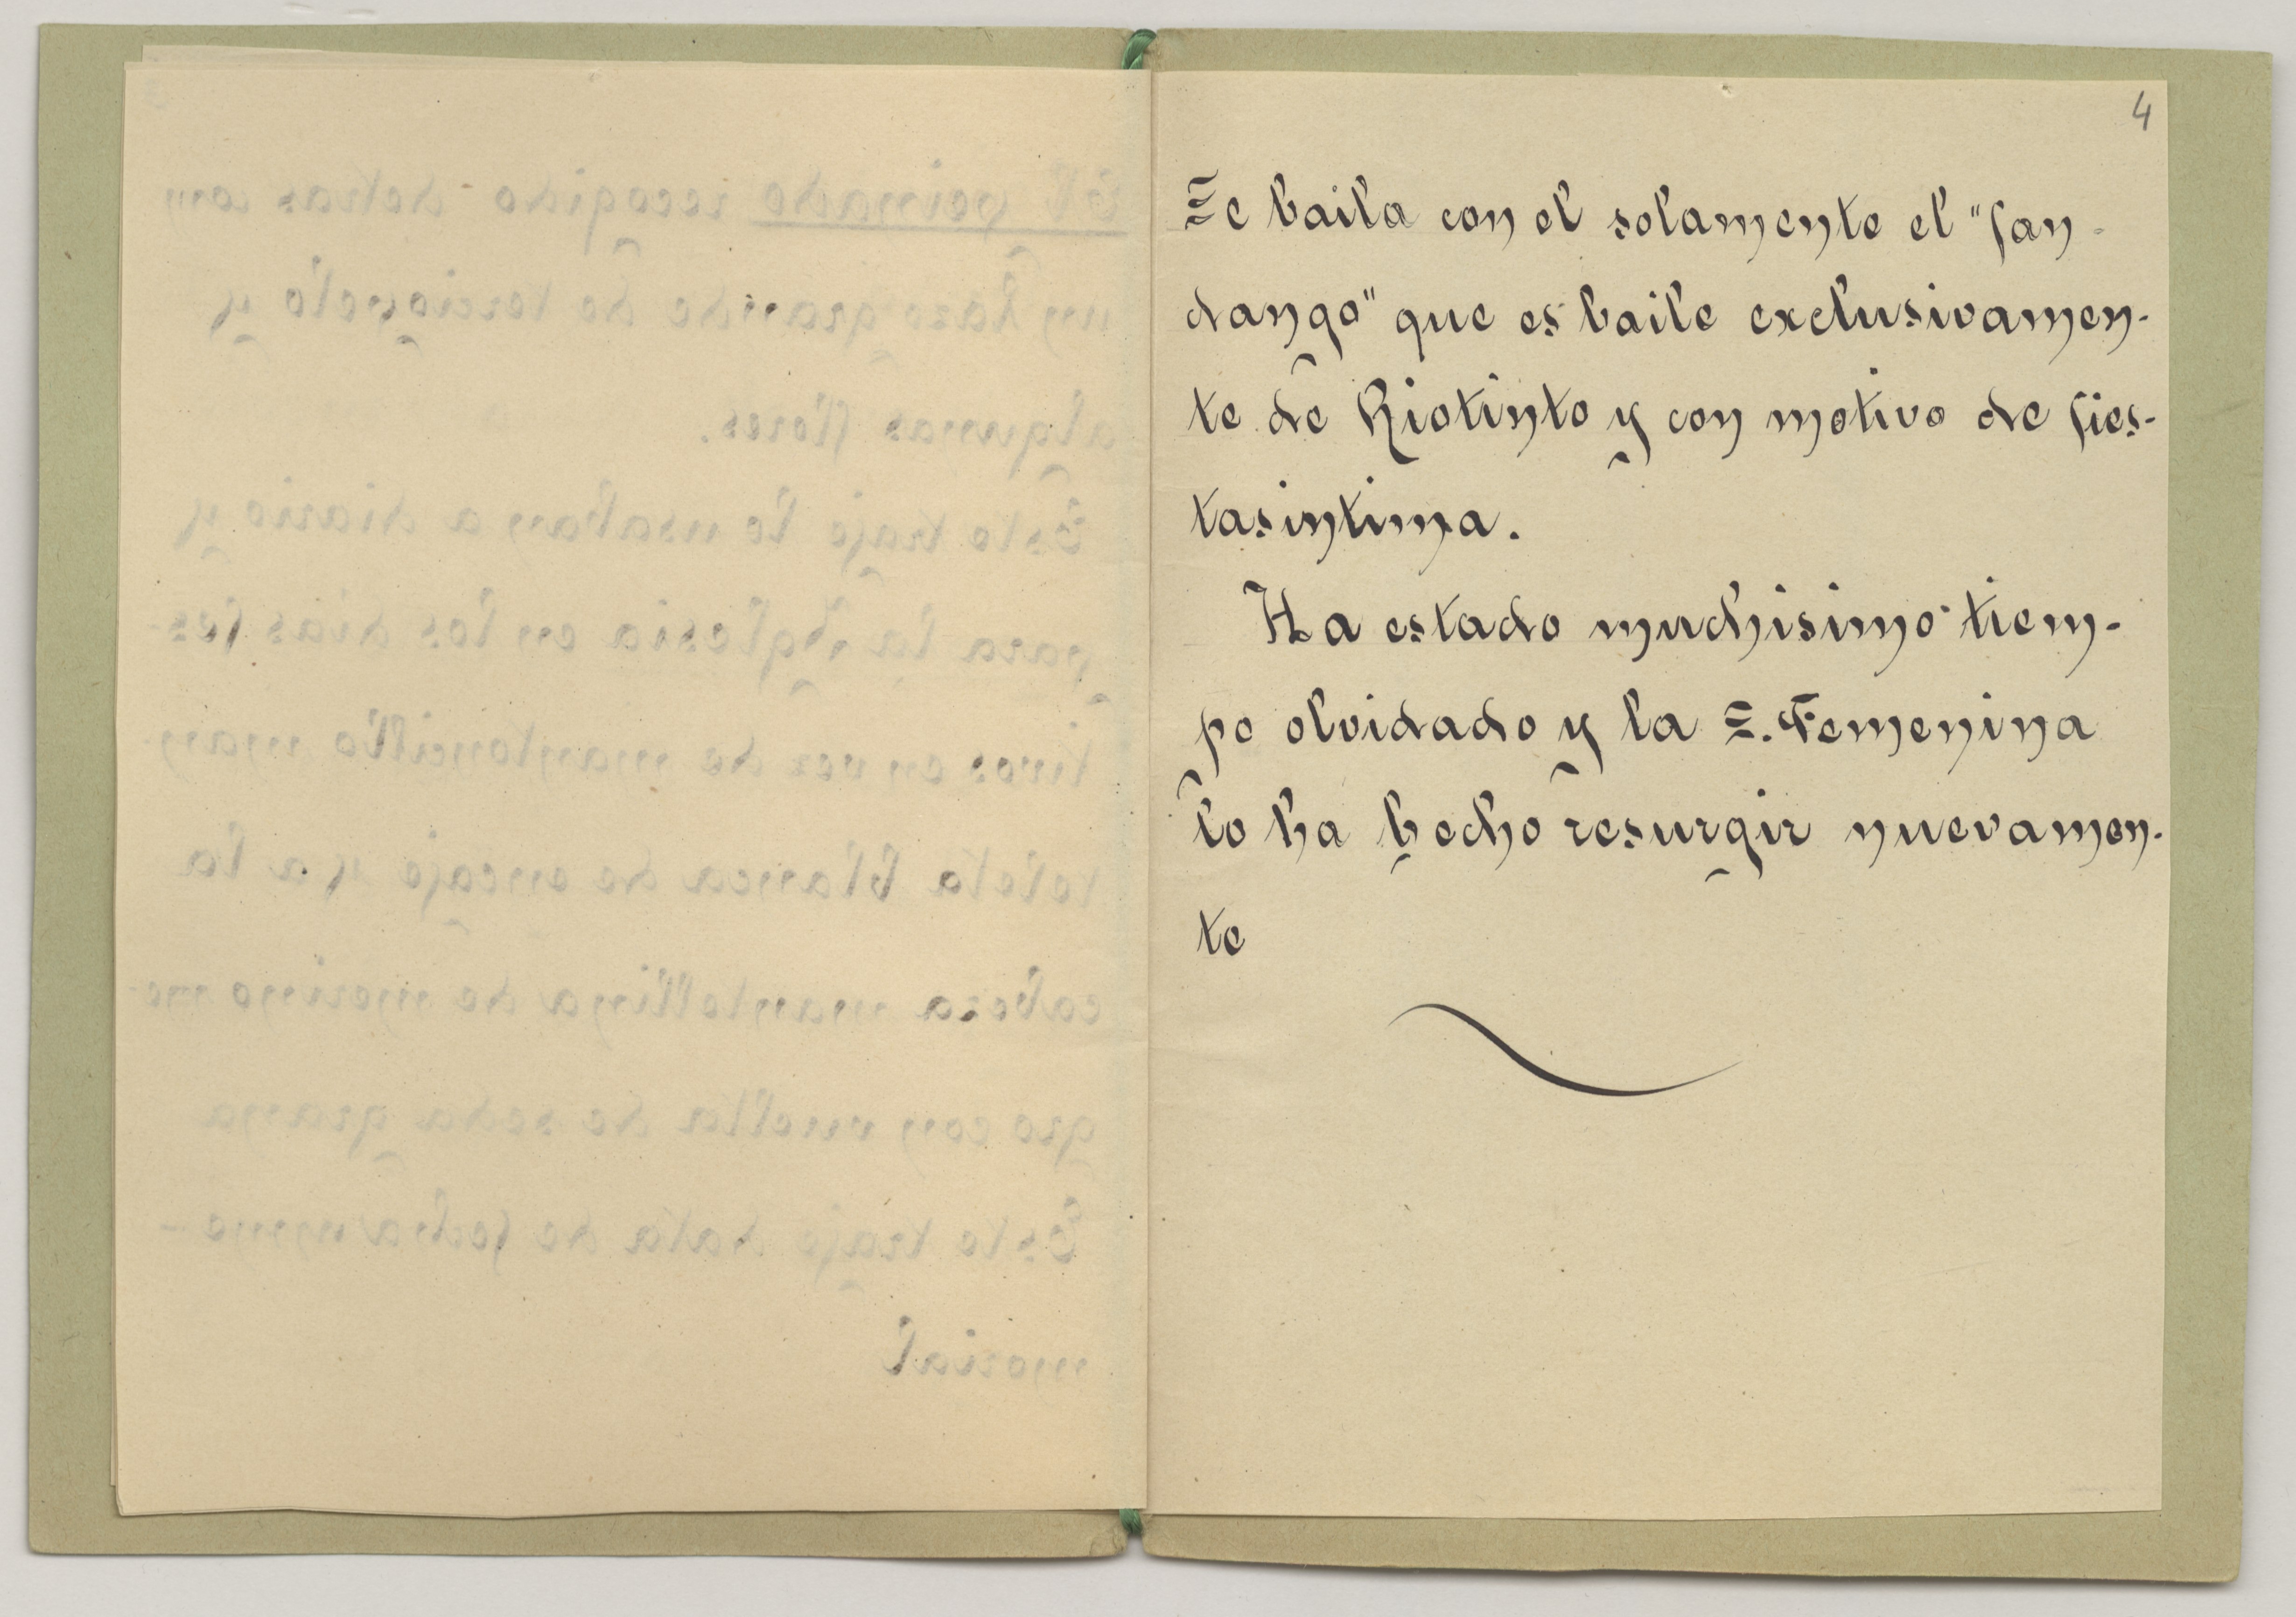 4
Se baila con el solamente el "fan-
dango" que es baile exclusivamen-
te de Riotinto y con motivo de fies-
tasintima.
Ha estado muchisimo tiem-
po olvidado y la S. Femenina
lo ha hecho resurgir nuevamen-
te